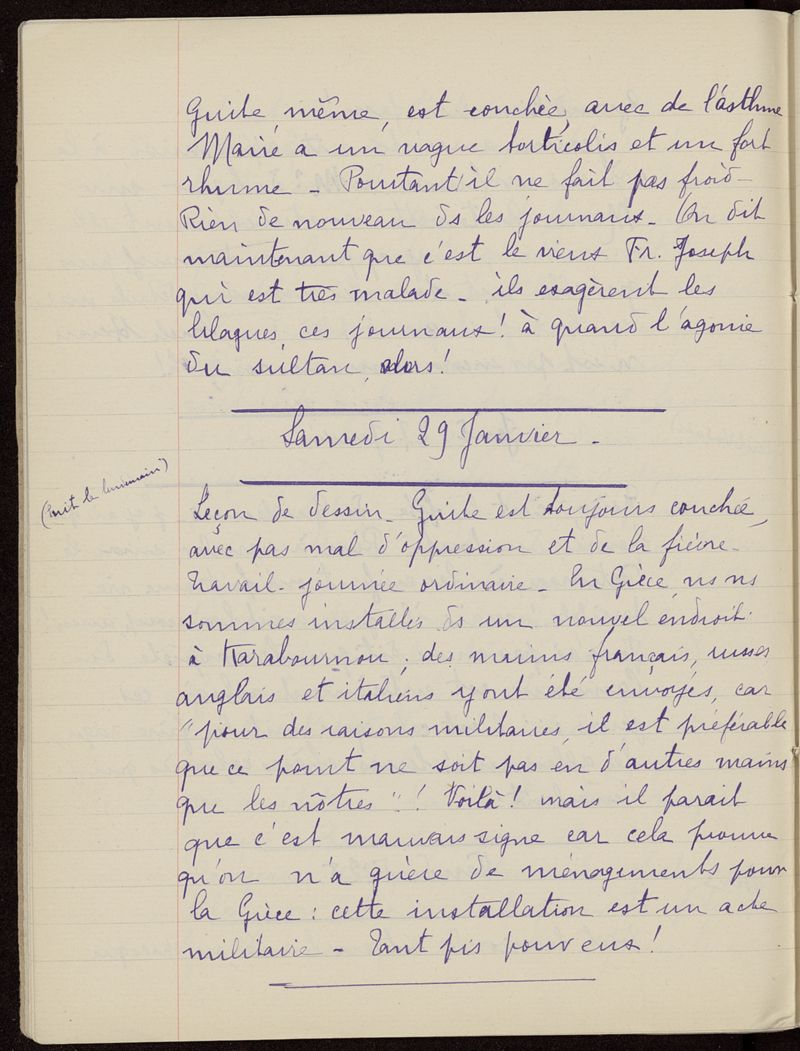 Guite, même, est couchée, avec de l'asthme
Marie a un vague torticolis et un fort
rhume - Pourtant il ne fait pas froid -
Rien de nouveau ds les journaux - On dit
maintenant que c'est le vieux Fr. Joseph
qui est très malade - ils exagèrent les
blagues, ces journaux ! à quand l'agonie
du sultan, alors !
Samedi 29 Janvier -
Leçon de dessin - Guite est toujours couchée,
avec pas mal d'oppression et de la fièvre -
Travail - journée ordinaire - En Grèce, ns ns
sommes installés ds un nouvel endroit :
à Karabournou ; des marins français, russes
anglais et italiens y ont été envoyés, car
"pour des raisons militaires, il est préférable
que ce point ne soit pas en d'autres mains
que les nôtres" ! Voilà ! mais il parait
que c'est mauvais signe car cela prouve
qu'on n'a guère de ménagements pour
la Grèce : cette installation est un acte
militaire - Tant pis pour eux !